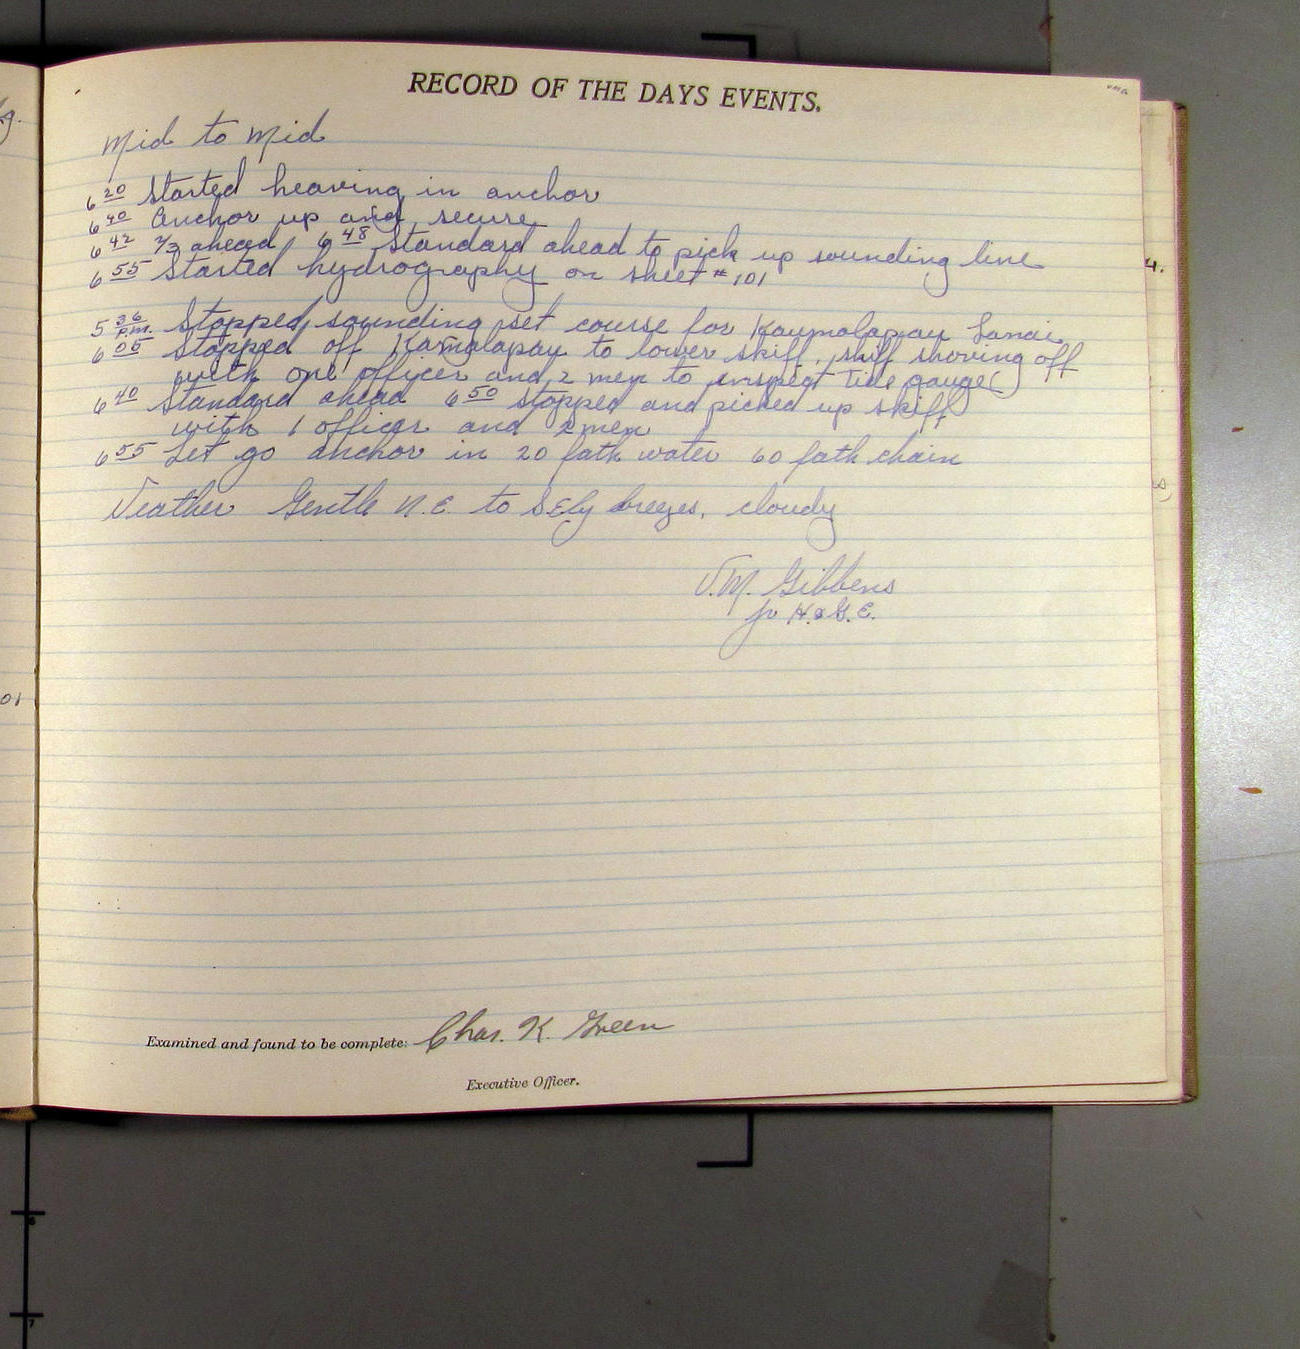 RECORD OF THE DAYS EVENTS.
Mid to Mid
6 20 Started heaving in anchor
6 40 Anchor up and secure
6 42 2/3 ahead, 6 48 Standard ahead to pick up sounding line
6 55 Started hydrography on sheet #101
5 36 pm. Stopped sounding, set course for Kaumalapau Lanai
6 05 Stopped off Kamalapau to lower skiff. skiff shoving off
with one officer and 2 men to inspect tide gauge
6 40 Standard ahead 6 50 stopped and picked up skiff
with 1 officer and 2 men
6 55 Let go anchor in 20 fath water 60 fath chain
Weather Gentle N.E. to SEly breezes, cloudy
V.M. Gibbens
jr H.&G.E.
Examined and found to be complete: Chas. K. Green
Executive Officer.
01
4.
6
7